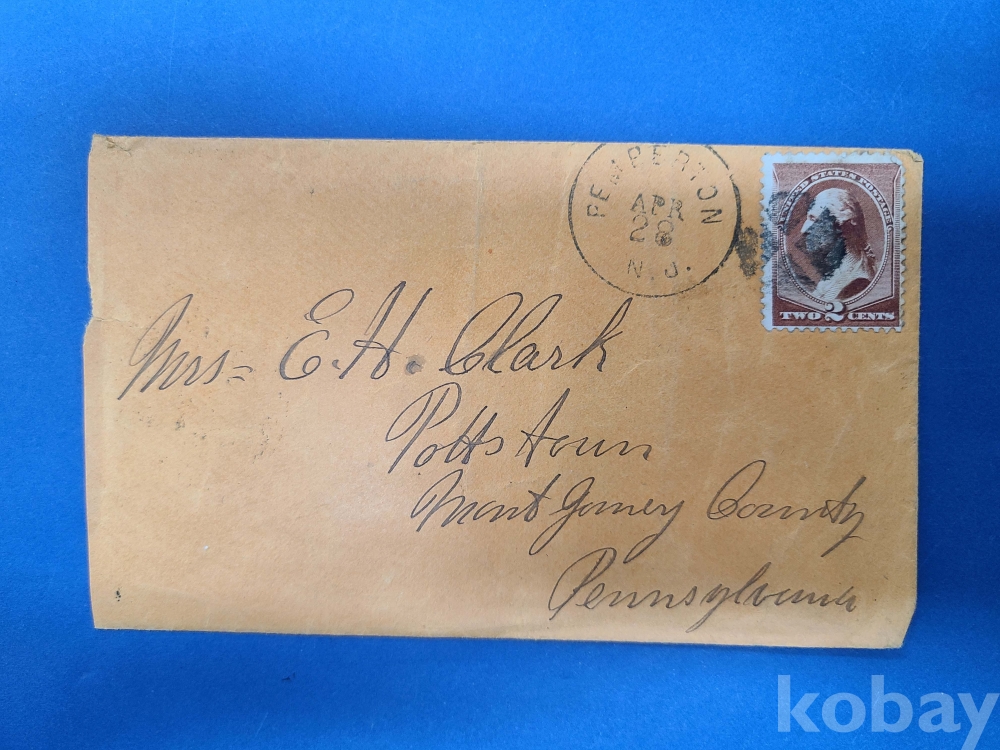 PEMBERTON
APR
28
N. J.
UNITED STATES POSTAGE
TWO 2 CENTS
Mrs= E. H. Clark
Pottstown
Montgomey County
Pennsylvania
kobay